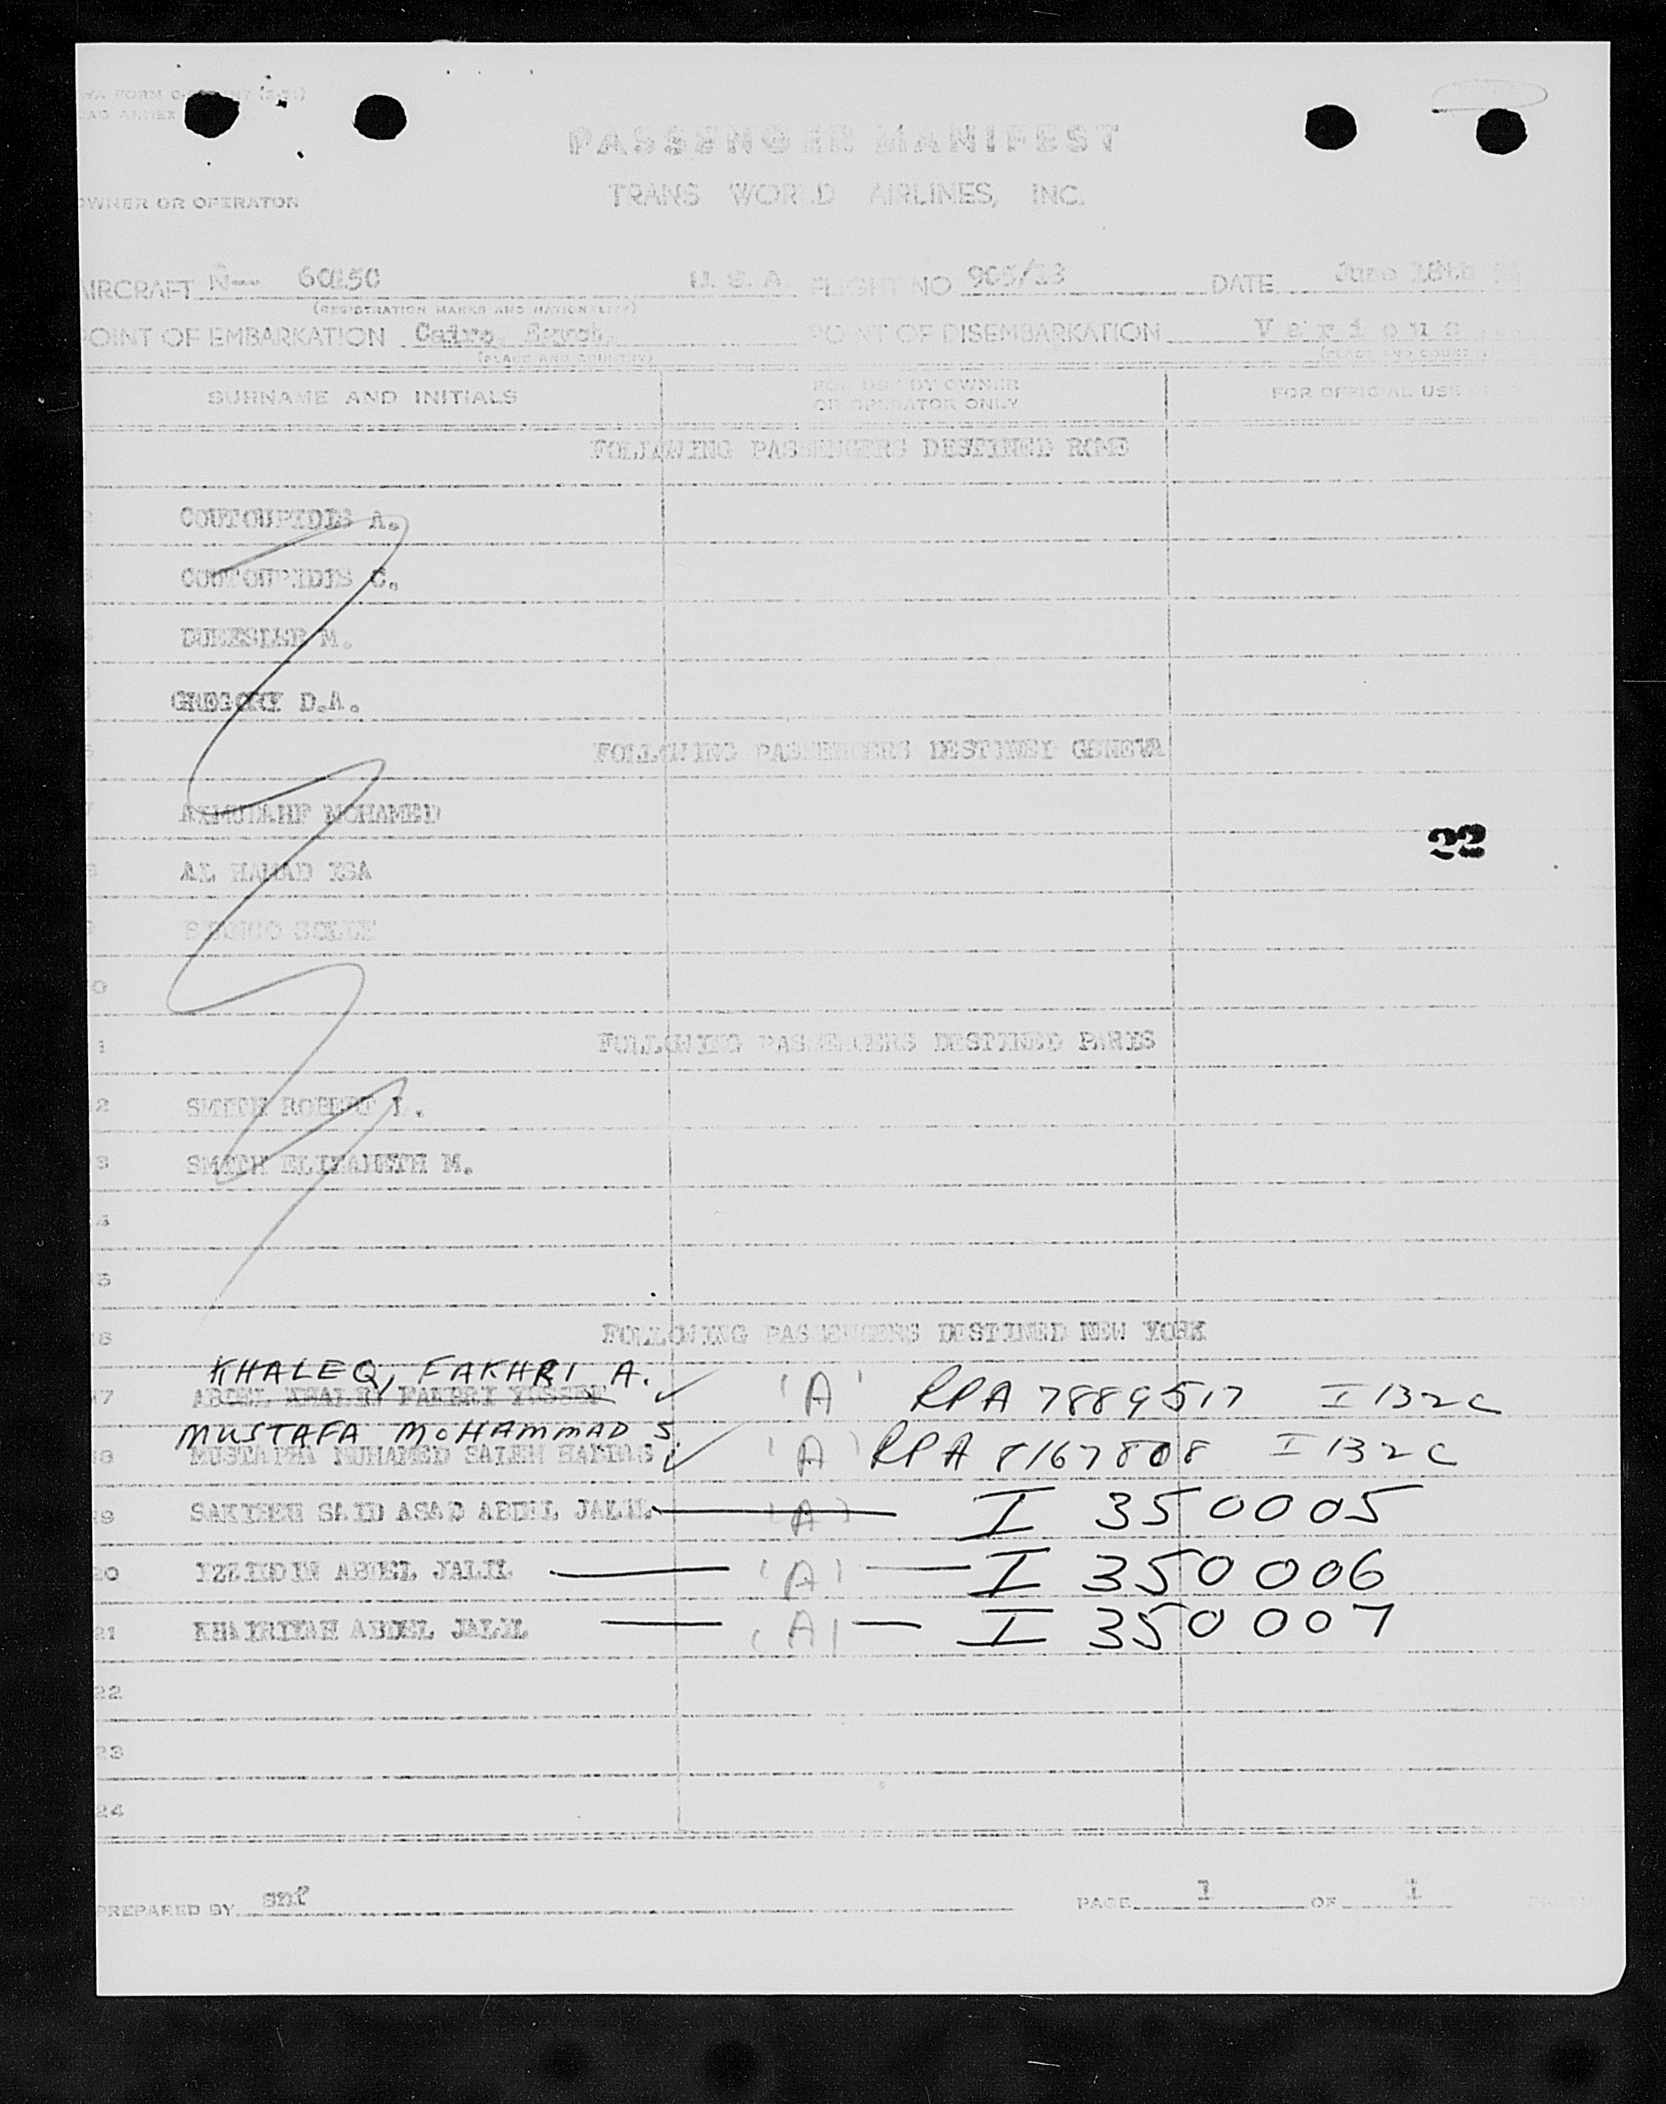 PASSENGER MANIFEST
TRANS WORLD AIRLINES, INC.
OWNER OR OPERATOR
AIRCRAFT N-- U. S. A. FLIGHT NO DATE June
(REGISTRATION MARKS AND NATIONALITY)
POINT OF EMBARKATION Cairo, Egypt. POINT OF DISEMBARKATION Various
(PLACE AND COUNTRY) (PLACE AND COUNTRY)
SURNAME AND INITIALS FOR USE BY OWNER OR OPERATOR ONLY FOR OFFICIAL USE
FOLLOWING PASSENGERS DESTINED ROME
COUTOUPIDIS A.
COUTOUPIDIS C.
M.
GREGORY D.A.
FOLLOWING PASSENGERS DESTINED GENEVA
MOHAMED
AL HAMAD ESA
FOLLOWING PASSENGERS DESTINED PARIS
2 SMITH ROBERT L.
3 SMITH ELIZABETH M.
4
5
6 FOLLOWING PASSENGERS DESTINED NEW YORK
KHALEQ, FAKHRI A.
7 ABDEL KHALEK FAKHRI YOUSSEF ✓ 'A' RPA 7889517 I 132C
MUSTAFA MOHAMMAD S.
8 MUSTAPHA MOHAMED SALEH ✓ 'A' RPA 8167808 I 132C
19 SAID ASAD ABDEL JALIL (A) I 350005
20 IZZIDIN ABDEL JALIL 'A' I 350006
21 KHAIRIYAH ABDEL JALIL (A) I 350007
22
22
23
24
PREPARED BY PAGE 1 OF 1